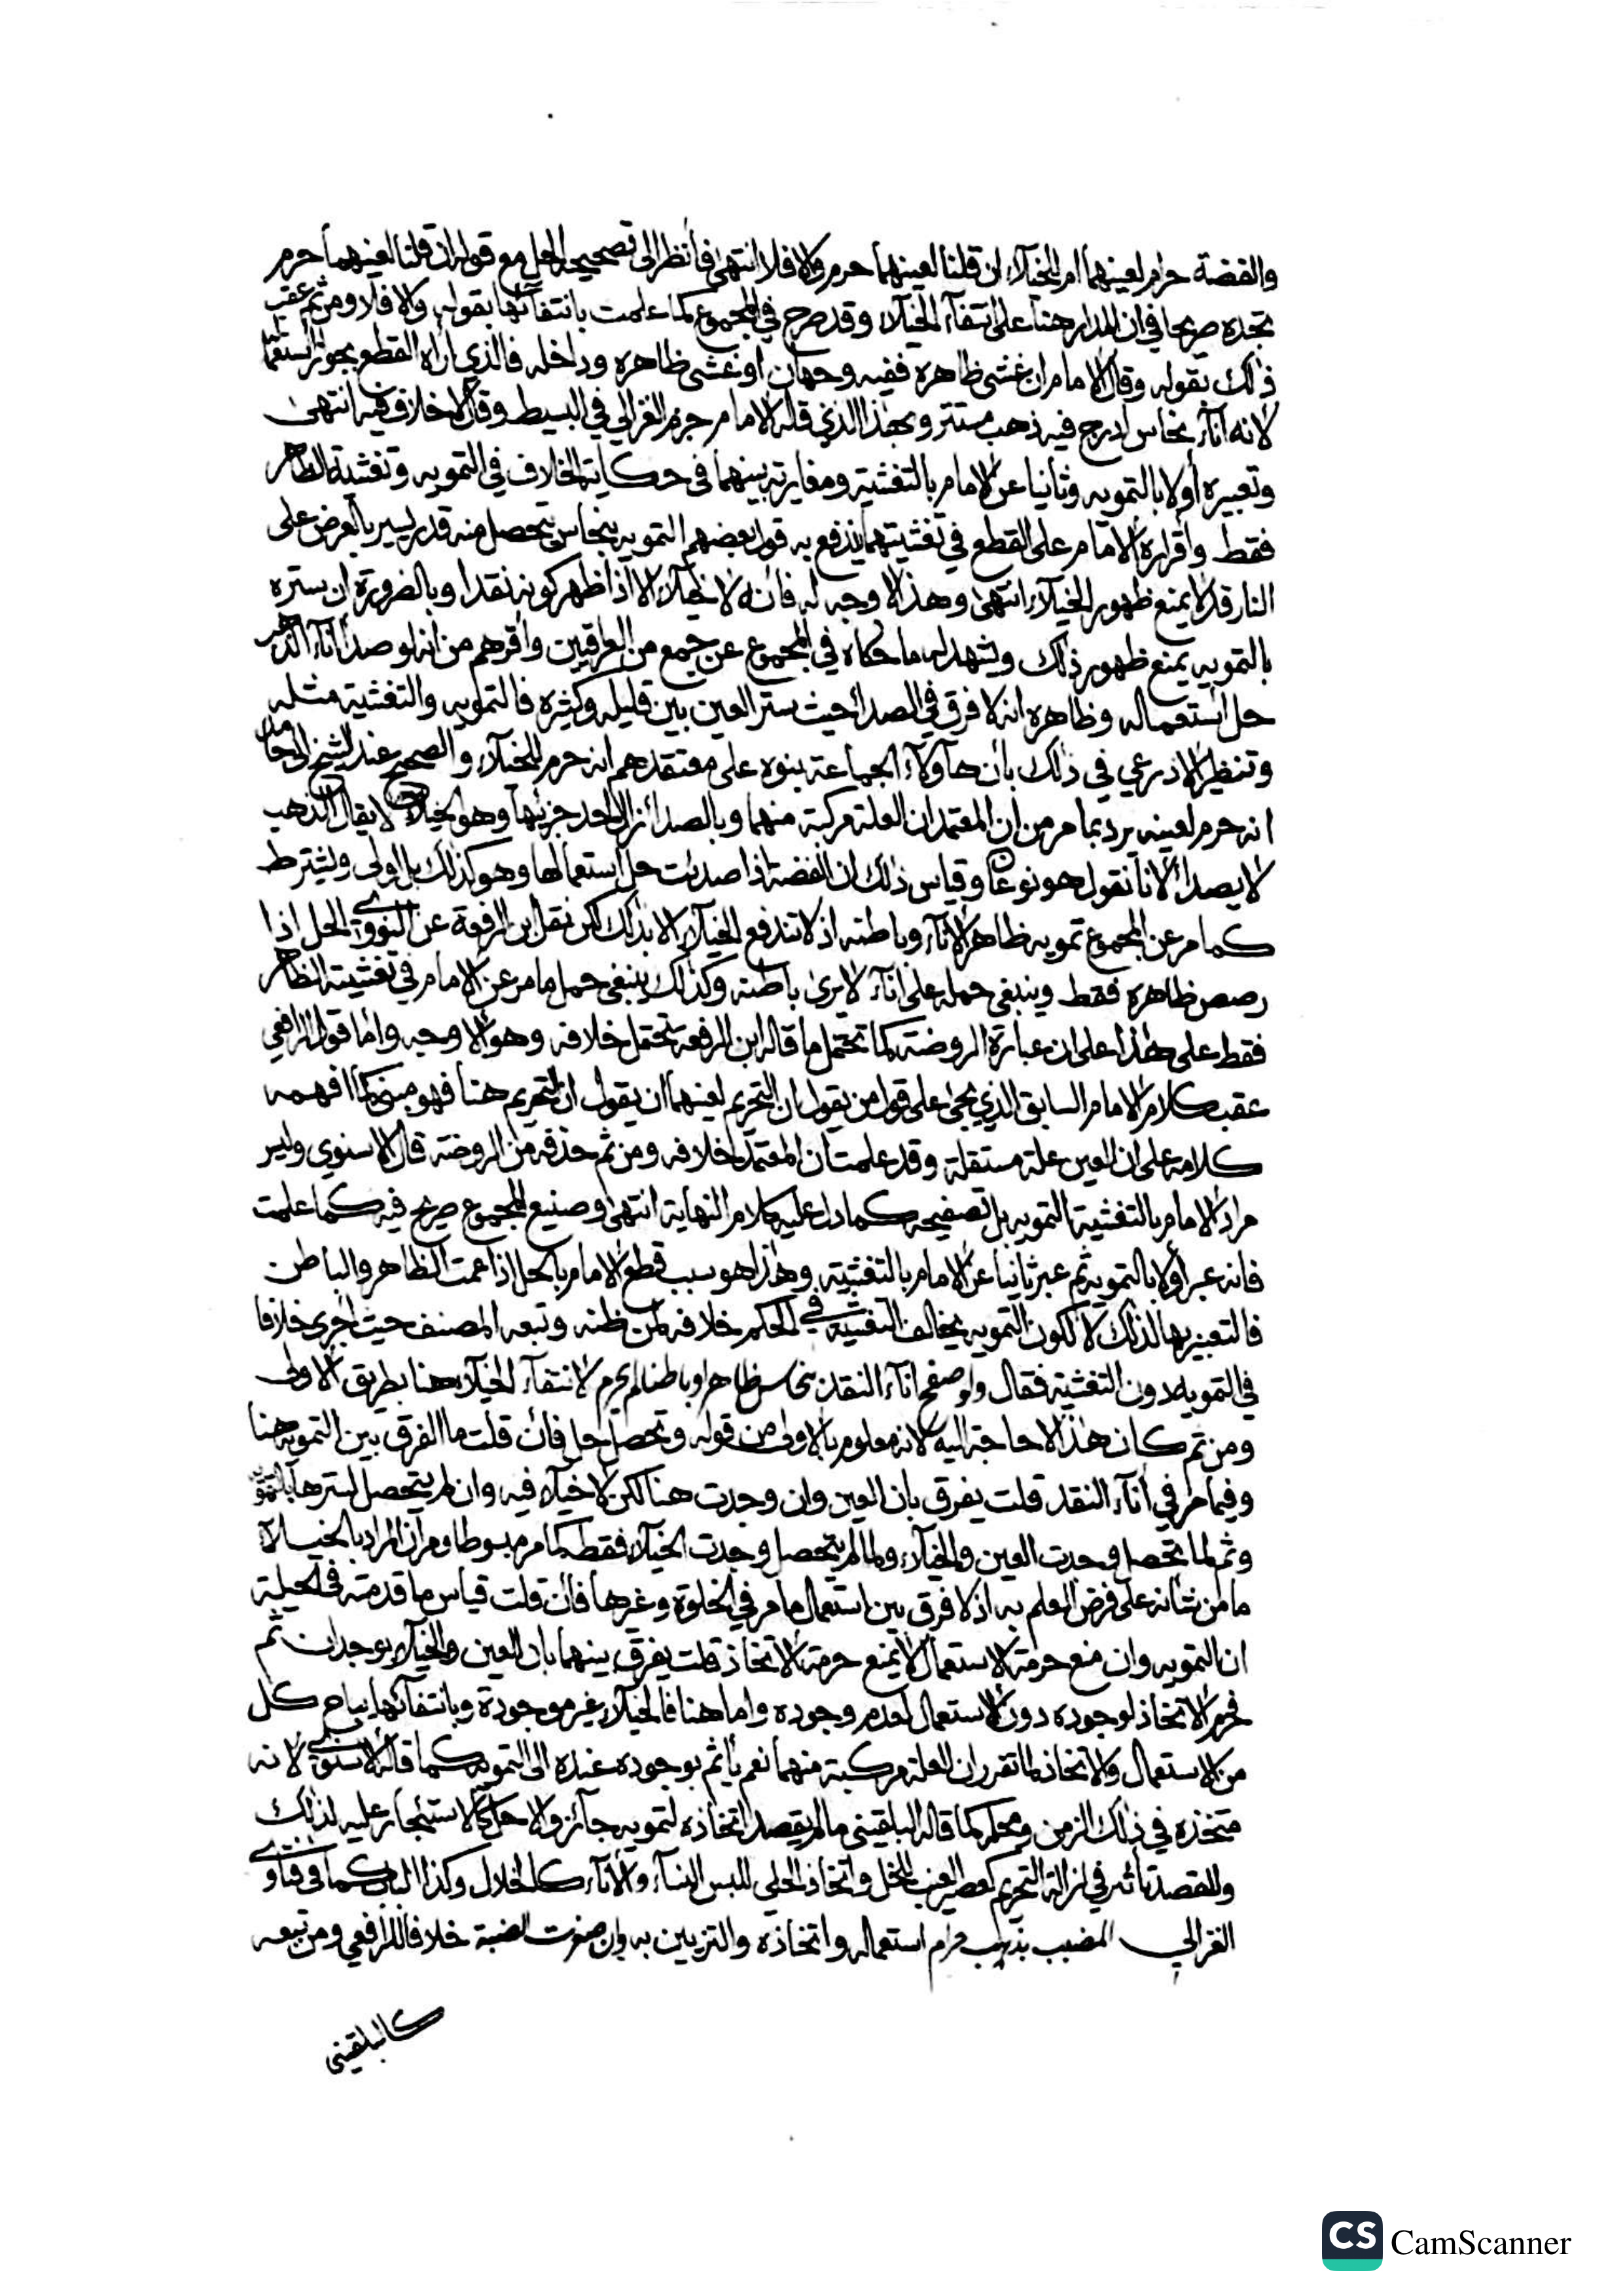 والفضة حرام لعينهما ام للخيلاء ان قلنا لعينهما حرم والا فلا انتهى فانظر الى تصحيحه الحل مع قوله ان قلنا لعينهما حرم
تجده صريحا في ان المدار هنا على انتفاء الخيلاء وقد صرح في المجموع كما علمت بانتفائها بقوله والا فلا ومن ثم عقب
ذلك بقوله وقال الامام ان غشى ظاهره ففيه وجهان او غشى ظاهره وداخله فالذي اراه القطع بجواز استعماله
لانه اناء نحاس ادرج فيه ذهب مستتر وبهذا الذي قاله الامام جزم الغزالي في البسيط وقال لا خلاف فيه انتهى
وتعبيره اولا بالتمويه وثانيا عن الامام بالتغشية ومغايرته بينهما في حكايته الخلاف في التمويه وتغشية الظاهر
فقط واقراره الامام على القطع في تغشيتهما يندفع به قول بعضهم التمويه بنحاس يتحصل منه قدر يسير بالعرض على
النار قد لا يمنع ظهور الخيلاء انتهى وهذا لا وجه له فانه لا خيلاء الا اذا ظهر كونه نقدا وبالضرورة ان ستره
بالتمويه يمنع ظهور ذلك ويشهد له ما حكاه في المجموع عن جمع من العراقيين واقرهم من انه لو صدأ اناء الذهب
حل استعماله وظاهره انه لا فرق في الصدا حيث ستر العين بين قليله وكثيره فالتمويه والتغشية مثله
وتنظير الاذرعي في ذلك بان هاؤلاء الجماعة بنوه على معتقدهم انه حرم للخيلاء والصحيح عند الشيخ ابي حامد
انه حرم لعينه يرد بما مر من ان المعتمد ان العلة مركبة منهما وبالصدا زال احد جزئيها وهو الخيلاء لا يقال الذهب
لا يصدأ لانا نقول هو نوعان وقياس ذلك ان الفضة اذا صدئت حل استعمالها وهو كذلك بل اولى ويشترط
كما مر عن المجموع تمويه ظاهر الاناء وباطنه اذ لا تندفع الخيلاء الا بذلك لكن نقل ابن الرفعة عن النووي الحل اذا
رصص ظاهره فقط وينبغي حمله على اناء لا يرى باطنه وكذلك ينبغي حمل ما مر عن الامام في تغشية الظاهر
فقط على هذا على ان عبارة الروضة كما تحتمل ما قاله ابن الرفعة تحتمل خلافه وهو الاوجه واما قول الرافعي
عقب كلام الامام السابق الذي يجئ على قول من يقول ان التحريم لعينهما ان يقول ان التحريم هنا فهو مبني كما افهمه
كلامه على ان العين علة مستقلة وقد علمت ان المعتمد خلافه ومن ثم حذفه من الروضة قال الاسنوي وليس
مراد الامام بالتغشية التمويه بل تصفيحه كما دل عليه كلام النهاية انتهى وصنيع المجموع صريح فيه كما علمت
فانه عبر اولا بالتمويه ثم عبر ثانيا عن الامام بالتغشية وهذا هو سبب قطع الامام بالحل اذا عمت الظاهر والباطن
فالتعبير بها لذلك لا لكون التمويه يخالف التغشية في الحكم خلافه لمن ظنه وتبعه المصنف حيث اجرى خلافا
في التمويه دون التغشية فقال ولو صفح اناء النقد بنحاس ظاهرا وباطنا لم يحرم لانتفاء الخيلاء هنا بطريق الاولى
ومن ثم كان هذا لا حاجة اليه لانه معلوم بالاولى من قوله وتحصل حل فان قلت ما الفرق بين التمويه هنا
وفيما مر في اناء النقد قلت يفرق بان العين وان وجدت هنا لكن لا خيلاء فيه وان لم يتحصل لسترها بالتمويه
وثم لما تحصل وجدت العين والخيلاء ولما لم يتحصل وجدت الخيلاء فقط كما مر مبسوطا ومر ان المراد بالخيلاء
ما من شانه على فرض العلم به اذ لا فرق بين استعمال ما مر في الخلوة وغيرها فان قلت قياس ما قدمته في الحيلة
ان التمويه وان منع حرمة الاستعمال لا يمنع حرمة الاتخاذ قلت يفرق بينهما بان العين والخيلاء يوجدان ثم
فحرم الاتخاذ لوجوده دون الاستعمال لعدم وجوده واما هنا فالخيلاء غير موجودة وبانتفائها يباح كل
من الاستعمال والاتخاذ لما تقرر ان العلة مركبة منهما نعم يأثم بوجوده عنده الى التمويه كما قاله الاسنوي لانه
متخذه في ذلك الزمن ومحله كما قاله البلقيني ما لم يقصد اتخاذه لتمويه جائز والا حل كالاستئجار عليه لذلك
وللقصد تأثير في ازالة التحريم كعصير العنب للخل واتخاذ الحلي للبس النساء والاناء كالخلال وكذا الباب كما في فتاوى
الغزالي المضبب بذهب حرام استعماله واتخاذه والتزيين به وان صغرت الضبة خلافا للرافعي ومن تبعه
كالبلقيني
CS CamScanner